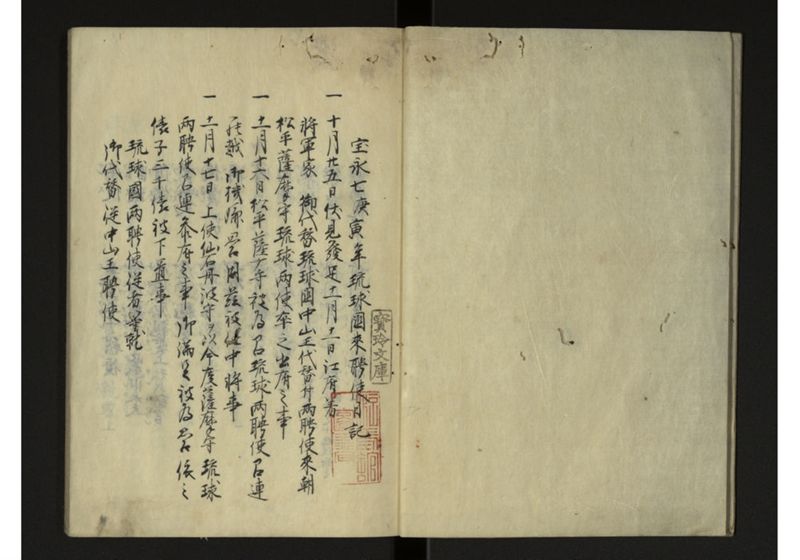 宝永七庚寅年琉球國来聘使日記
寳玲文庫
一 十月廿五日伏見發足十一月十一日江府着
將軍家 御代替琉球國中山王代替付両聘使来朝
松平薩摩守琉球両使卒之出府之事
一 十一月十六日松平薩广守被為召琉球両聘使召連
登城 御機嫌 思召 被任中將事
一 十一月十七日 上使仙石丹波守ヲ以今度薩摩守琉球
両聘使召連参府之事 御満足被為思召依之
俵子三千俵被下置事
琉球國両聘使従者登城
御代替従中山王聘使